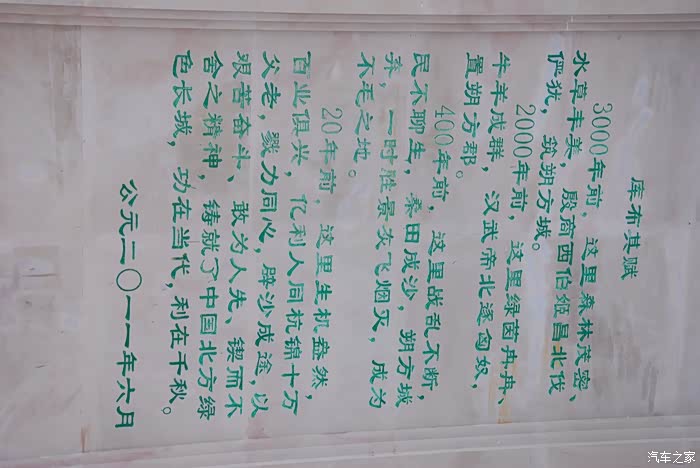 库布其赋
3000年前，这里森林茂密、
水草丰美，殷商西伯姬昌北伐
俨狁，筑朔方城。
2000年前，这里绿茵冉冉、
牛羊成群，汉武帝北逐匈奴，
置朔方郡。
400年前，这里战乱不断，
民不聊生，桑田成沙，朔方城
弃，一时胜景灰飞烟灭，成为
不毛之地。
20年前，这里生机盎然，
百业俱兴，亿利人同杭锦十万
父老，戮力同心，辟沙成途，以
艰苦奋斗、敢为人先、锲而不
舍之精神，铸就了中国北方绿
色长城，功在当代，利在千秋。
公元二〇一一年六月
汽车之家